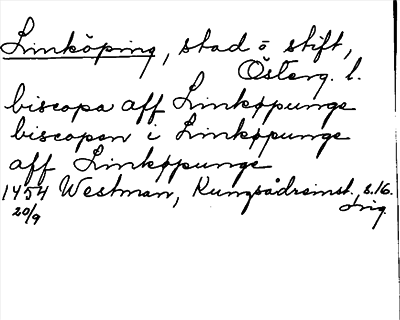 Linköping, stad o stift,
Österg. l.
biscopa aff Linkøpunge
biscopen i Linkøpunge
aff Linkøpunge
1454 Westman, Kungsådreinst. s.16.
20/9 orig.